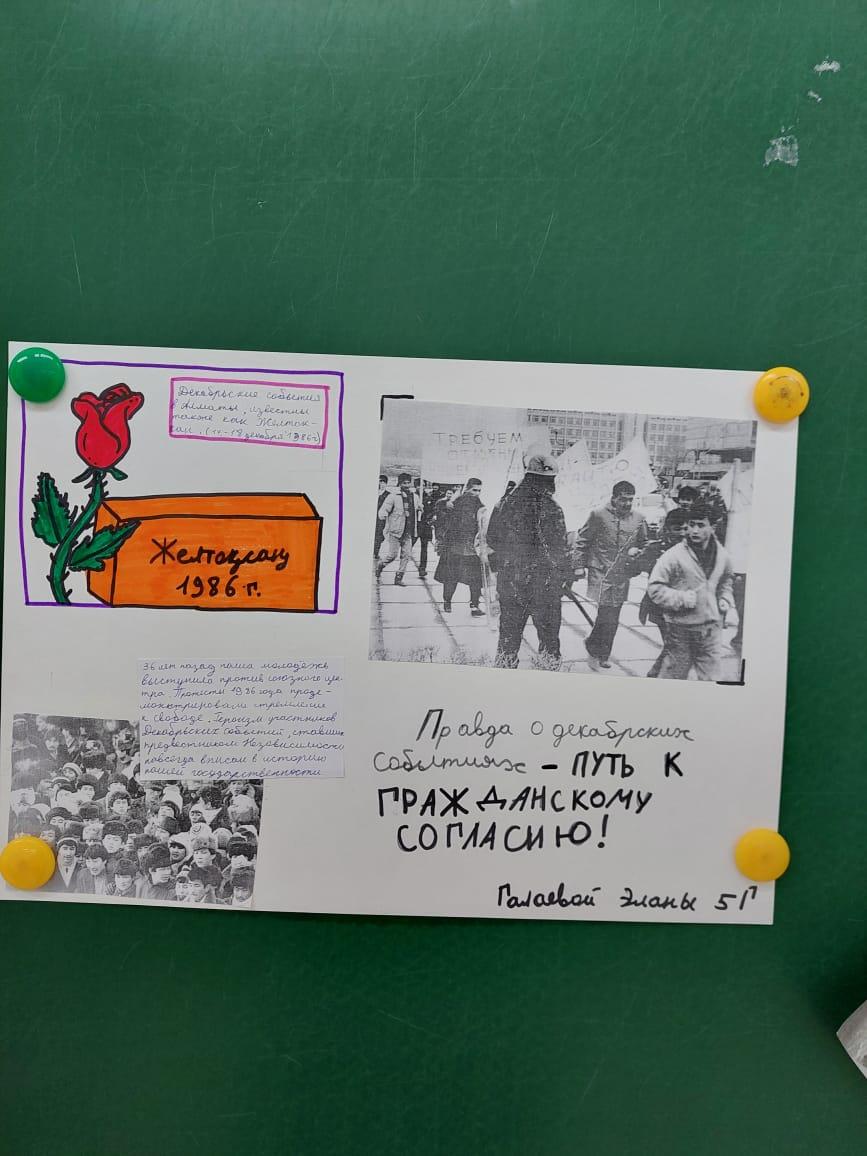 Декабрьские события
в Алматы, известны
также как Желток-
сан. (17-18 декабря 1986г)
Желтоқсану
1986 г.
ТРЕБУЕМ
ОТМЕНЫ
36 лет назад наша молодежь
выступила против союзного цен-
тра. Протесты 1986 года проде-
монстрировали стремление
к свободе. Героизм участников
Декабрьских событий, ставших
предвестником Независимости
навсегда вписан в историю
нашей государственности
Правда о декабрьских
событиях – ПУТЬ К
ГРАЖДАНСКОМУ
СОГЛАСИЮ!
Галаевой Эланы 5Г